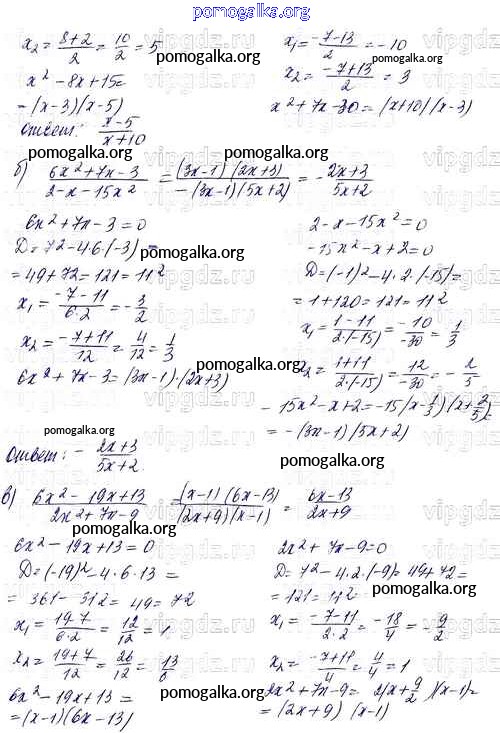 pomogalka.org
x₂ = (8+2)/2 = 10/2 = 5
x² - 8x + 15 =
= (x-3)(x-5)
Ответ: (x-5)/(x+10)
x₁ = (-7-13)/2 = -10
x₂ = (-7+13)/2 = 3
x² + 7x - 30 = (x+10)(x-3)
pomogalka.org
pomogalka.org
б) (6x² + 7x - 3)/(2 - x - 15x²) = (3x-1)(2x+3)/(-(3x-1)(5x+2)) = -(2x+3)/(5x+2)
pomogalka.org
6x² + 7x - 3 = 0
D = 7² - 4·6·(-3) =
= 49 + 72 = 121 = 11²
x₁ = (-7-11)/(6·2) = -3/2
x₂ = (-7+11)/12 = 4/12 = 1/3
6x² + 7x - 3 = (3x-1)·(2x+3)
2 - x - 15x² = 0
-15x² - x + 2 = 0
D = (-1)² - 4·2·(-15) =
= 1 + 120 = 121 = 11²
x₁ = (1-11)/(2·(-15)) = -10/-30 = 1/3
x₂ = (1+11)/(2·(-15)) = 12/-30 = -2/5
-15x² - x + 2 = -15(x - 1/3)(x + 2/5) =
= -(3x-1)(5x+2)
pomogalka.org
pomogalka.org
pomogalka.org
pomogalka.org
Ответ: -(2x+3)/(5x+2)
pomogalka.org
в) (6x² - 19x + 13)/(2x² + 7x - 9) = (x-1)(6x-13)/((2x+9)(x-1)) = (6x-13)/(2x+9)
pomogalka.org
6x² - 19x + 13 = 0
D = (-19)² - 4·6·13 =
= 361 - 312 = 49 = 7²
x₁ = (19-7)/(6·2) = 12/12 = 1
x₂ = (19+7)/12 = 26/12 = 13/6
6x² - 19x + 13 =
= (x-1)(6x-13)
2x² + 7x - 9 = 0
D = 7² - 4·2·(-9) = 49 + 72 =
= 121 = 11²
x₁ = (-7-11)/(2·2) = -18/4 = -9/2
x₂ = (-7+11)/4 = 4/4 = 1
2x² + 7x - 9 = 2(x + 9/2)(x-1) =
= (2x+9)(x-1)
pomogalka.org
pomogalka.org
pomogalka.org
pomogalka.org